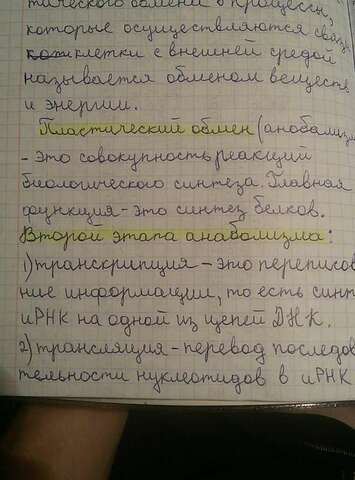 тического обмена о процессы,
которые осуществляются связь
клетки с внешней средой
называется обменом веществ
и энергии.
Пластический обмен (анаболизм
- это совокупность реакций
биологического синтеза. Главная
функция - это синтез белков.
Второй этапа анаболизма:
1) транскрипция - это переписов
ние информации, то есть синт
иРНК на одной из цепей ДНК.
2) трансляция - перевод последов
тельности нуклеотидов в иРНК